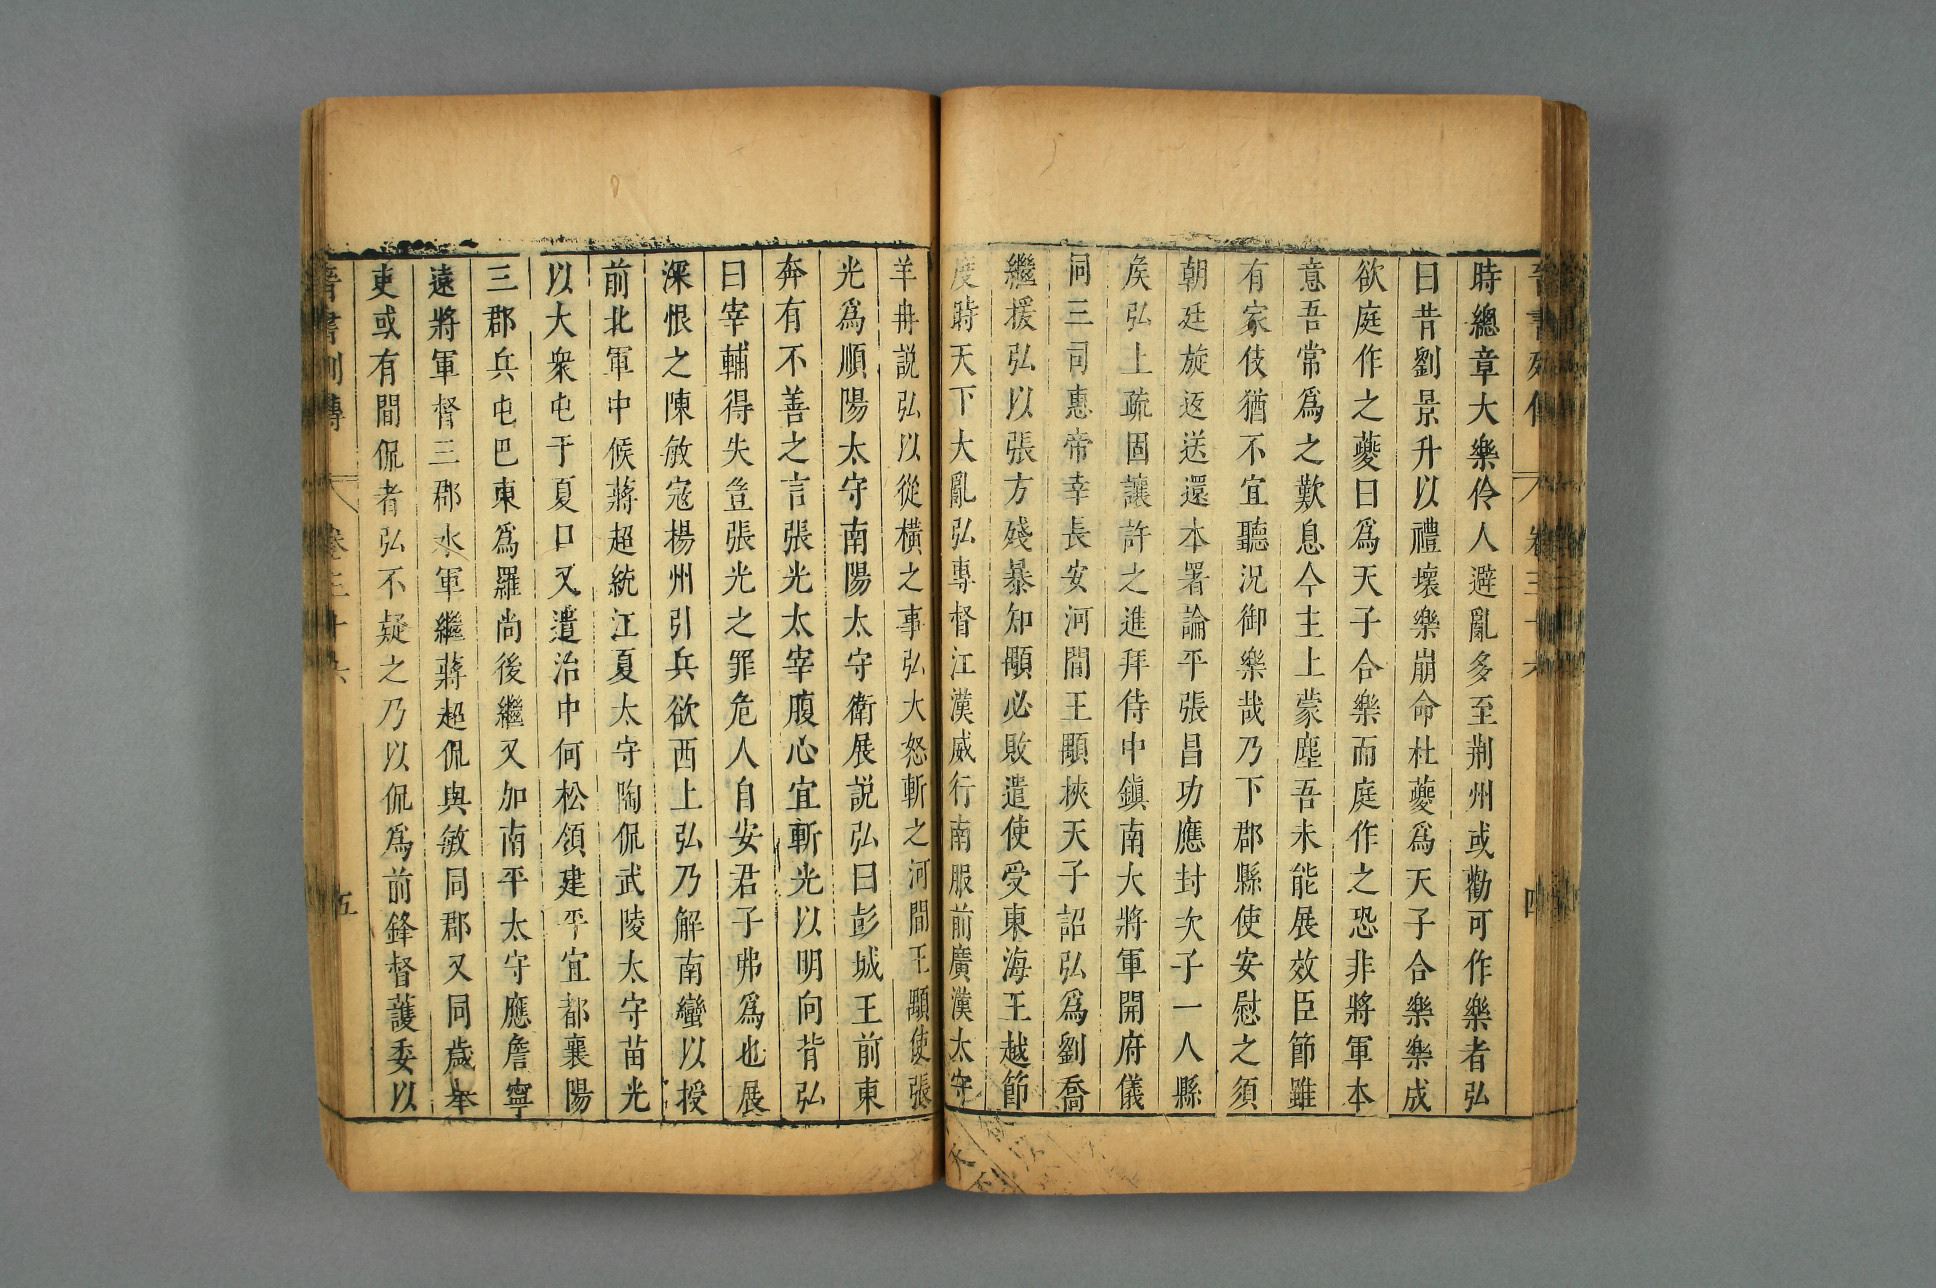 晉書列傳 卷三十六 四
時總章大樂伶人避亂多至荆州或勸可作樂者弘
曰昔劉景升以禮壞樂崩命杜夔爲天子合樂樂成
欲庭作之夔曰爲天子合樂而庭作之恐非將軍本
意吾常爲之歎息今主上蒙塵吾未能展效臣節雖
有家伎猶不宜聽況御樂哉乃下郡縣使安慰之須
朝廷旋返送還本署論平張昌功應封次子一人縣
矦弘上疏固讓許之進拜侍中鎮南大將軍開府儀
同三司惠帝幸長安河間王顒挾天子詔弘爲劉喬
繼援弘以張方殘暴知顒必敗遣使受東海王越節
度時天下大亂弘專督江漢威行南服前廣漢太守
羊冉說弘以從橫之事弘大怒斬之河間王顒使張
光爲順陽太守南陽太守衛展說弘曰彭城王前東
奔有不善之言張光太宰腹心宜斬光以明向背弘
曰宰輔得失豈張光之罪危人自安君子弗爲也展
深恨之陳敏寇楊州引兵欲西上弘乃解南蠻以授
前北軍中候蔣超統江夏太守陶侃武陵太守苗光
以大衆屯于夏口又遣治中何松領建平宜都襄陽
三郡兵屯巴東爲羅尚後繼又加南平太守應詹寧
遠將軍督三郡水軍繼蔣超侃與敏同郡又同歲舉
吏或有間侃者弘不疑之乃以侃爲前鋒督護委以
晉書列傳 卷三十六 五